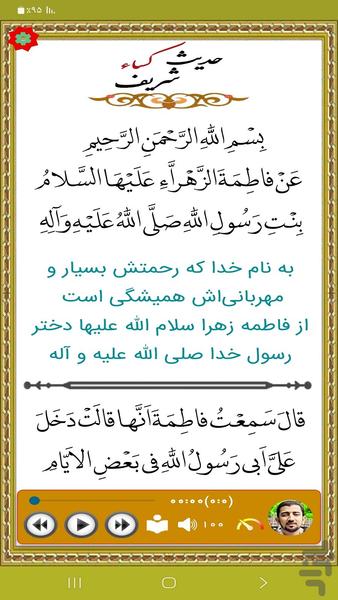 ٪۹۵
حدیث شریف کساء
بِسْمِ اللهِ الرَّحْمَنِ الرَّحِيمِ
عَنْ فاطِمَةَ الزَّهْراَّءِ عَلَيْهَا السَّلامُ
بِنْتِ رَسُولِ اللهِ صَلَّى اللهُ عَلَيْهِ وَآلِهِ
به نام خدا که رحمتش بسیار و
مهربانی‌اش همیشگی است
از فاطمه زهرا سلام الله علیها دختر
رسول خدا صلی الله علیه و آله
قالَ سَمِعْتُ فاطِمَةَ اَنَّها قالَتْ دَخَلَ
عَلَىَّ اَبى رَسُولُ اللهِ فى بَعْضِ الاَْيّامِ
۰۰:۰۰(۰:۰)
۱۰۰
بازار